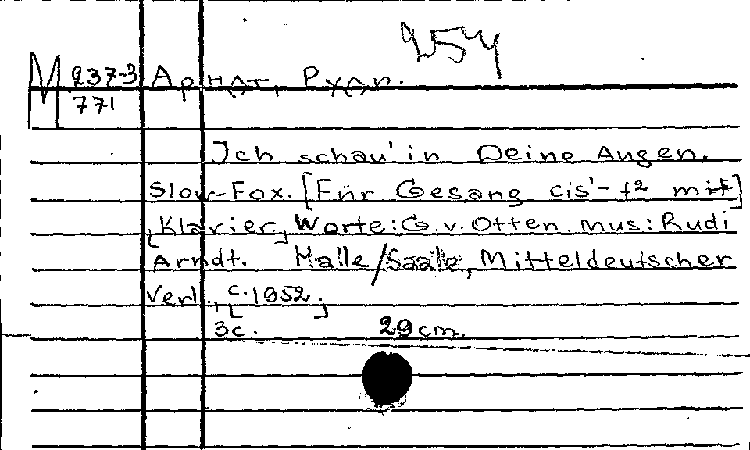 254
М 237-3 Арндт, Руди.
771
Ich schau' in Deine Augen.
Slow-Fox. [Für Gesang cis'-f² mit]
[Klavier] Worte: G. v. Otten. Mus: Rudi
Arndt. Halle/Saale, Mitteldeutscher
Verl., [c. 1952.]
3 с. 29 cm.